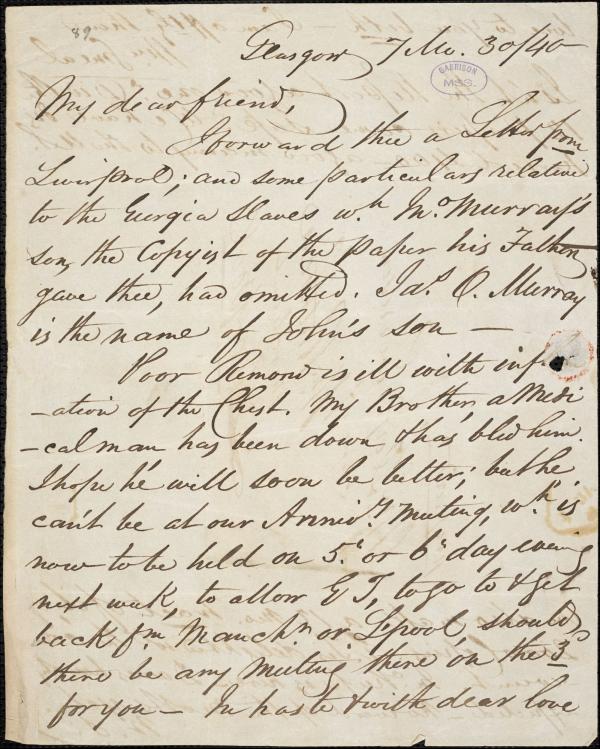 89
Glasgow 7 Mo. 30/40
GARRISON
MSS.
My dear friend,
I forward thee a Letter from
Liverpool; and some particulars relative
to the Georgia Slaves wh. Jno. Murray's
son, the Copyist of the paper his Father
gave thee, had omitted. Jas. O. Murray
is the name of John's son —
Poor Remond is ill with
-ation of the Chest. My Brother, a Medi
-cal man, has been down & has bled him.
I hope he will soon be better; but he
can't be at our Anniv.y Meeting, wh. is
now to be held on 5th or 6th day evening
next week, to allow G T, to go to & get
back fm. Manchr. or Lpool, should
there be any Meeting there on the 3d
for you — In haste & with dear love